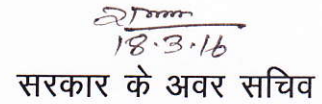 18.3.16
सरकार के अवर सचिव